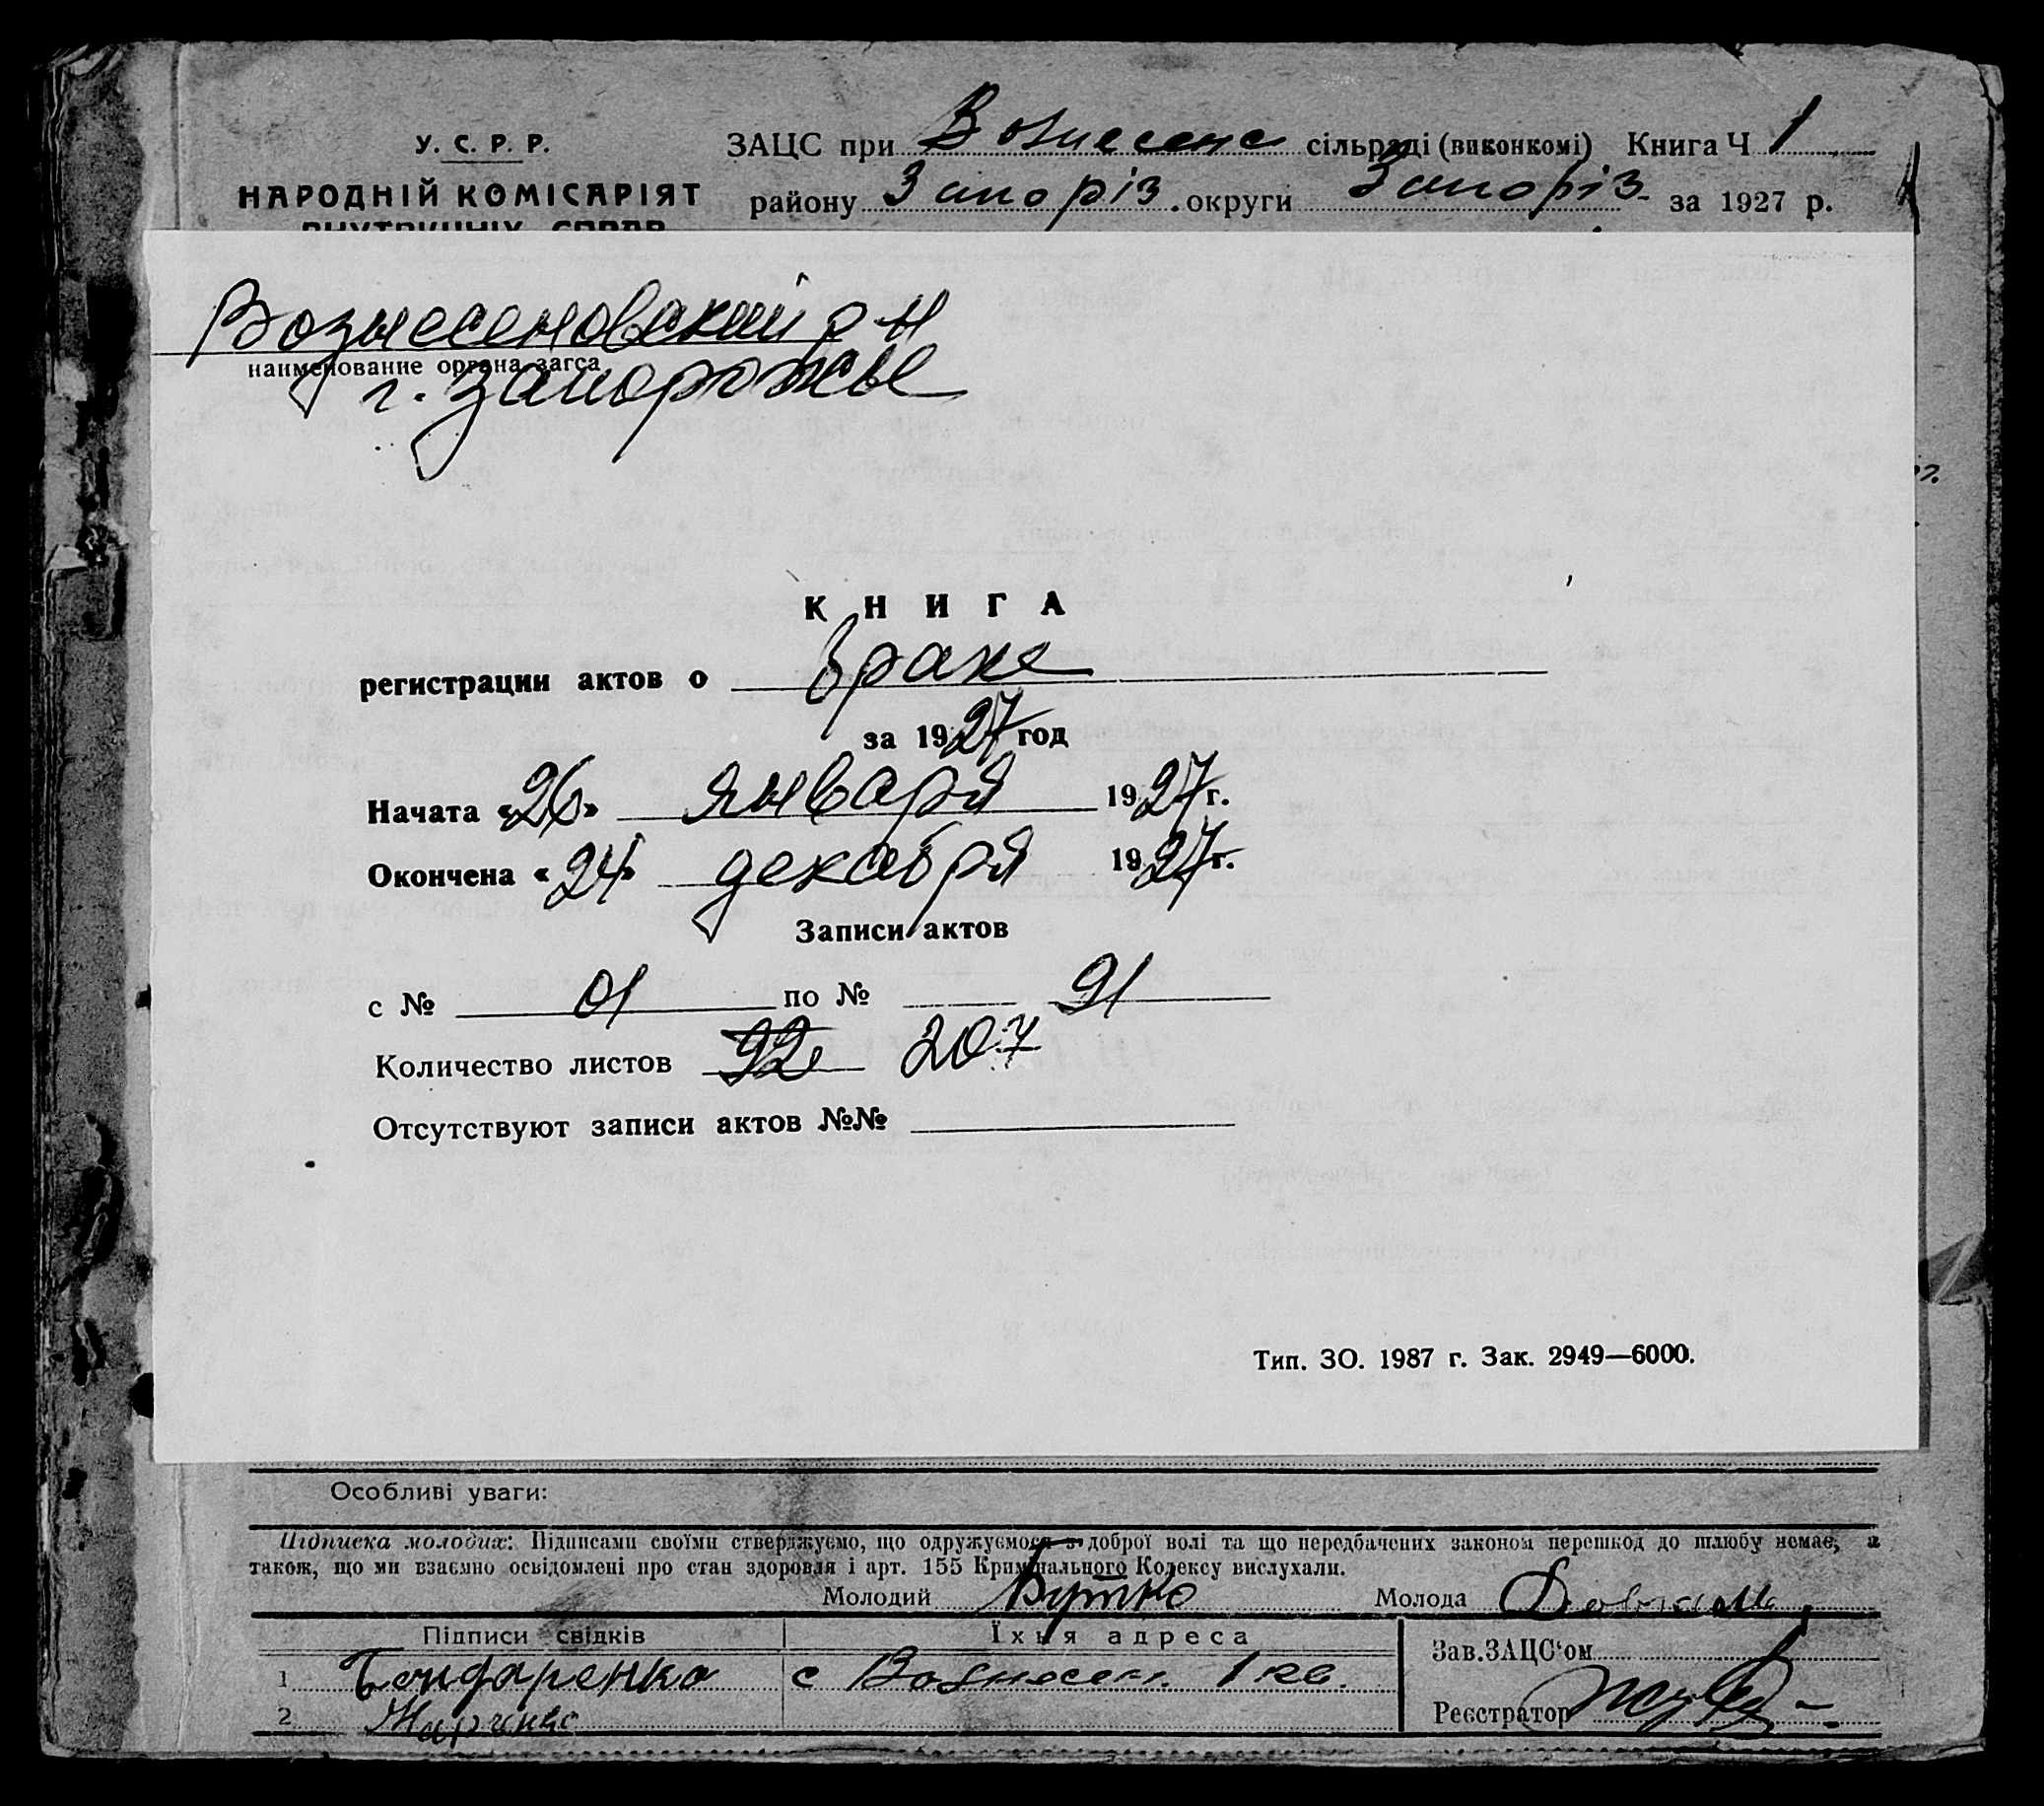 У. С. Р. Р.
НАРОДНІЙ КОМІСАРІЯТ
ВНУТРІШНІХ СПРАВ
ЗАЦС при Вознесенс сільраді (виконкомі) Книга Ч 1
району Запоріз. округи Запоріз- за 1927 р.
Вознесеновский р-н
наименование органа загса
г. Запорожье
КНИГА
регистрации актов о браке
за 1927 год
Начата «26» января 1927 г.
Окончена «24» декабря 1927 г.
Записи актов
с № 01 по № 91
Количество листов 92 207
Отсутствуют записи актов №№
Тип. ЗО. 1987 г. Зак. 2949—6000.
Особливі уваги:
Підписка молодих: Підписами своїми стверджуємо, що одружуємося з доброї волі та що передбачених законом перешкод до шлюбу немає, а
також, що ми взаємно освідомлені про стан здоровля і арт. 155 Кримінального Кодексу вислухали.
Молодий Бутко Молода
Підписи свідків Їхня адреса
1 Бондаренко с Вознесен. 1 кв.
2
Зав.ЗАЦС'ом
Реєстратор